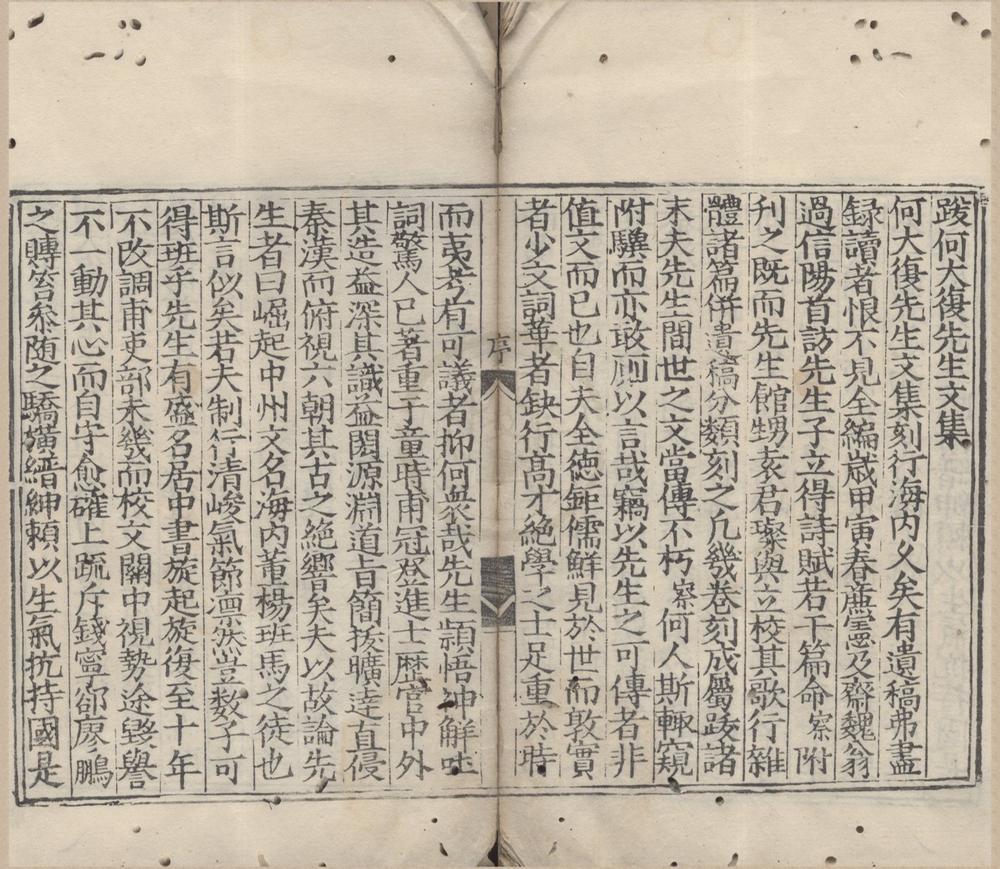 跋何大復先生文集
何大復先生文集刻行海内久矣有遺稿弗盡
録讀者恨不見全編歳甲寅春㢘憲乃齋魏翁
過信陽首訪先生子立得詩賦若干篇命察附
刋之既而先生館甥袁君璨與立校其歌行雜
體諸篇併遺稿分類刻之凡幾卷刻成屬跋諸
末夫先生間世之文當傳不朽察何人斯輙窺
附驥而亦敢厠以言哉竊以先生之可傳者非
值文而已也自夫全徳鉅儒鮮見於世而敦實
者少文詞華者缺行高才絶學之士足重於時
序
而夷考有可議者抑何衆哉先生頴悟神解吐
詞驚人已著重于童時甫冠登進士歴官中外
其造益深其識益閎源淵道旨簡拔曠逹直侵
秦漢而俯視六朝其古之絶響矣夫以故論先
生者曰崛起中州文名海内董楊班馬之徒也
斯言似矣若夫制行清峻氣節凛然豈数子可
得班乎先生有盛名居中書旋起旋復至十年
不改調甫吏部未幾而校文關中視勢途毀譽
不一動其心而自守愈確上䟽斥錢寧郤廖鵬
之賻笞叅随之驕横縉紳頼以生氣抗持國是